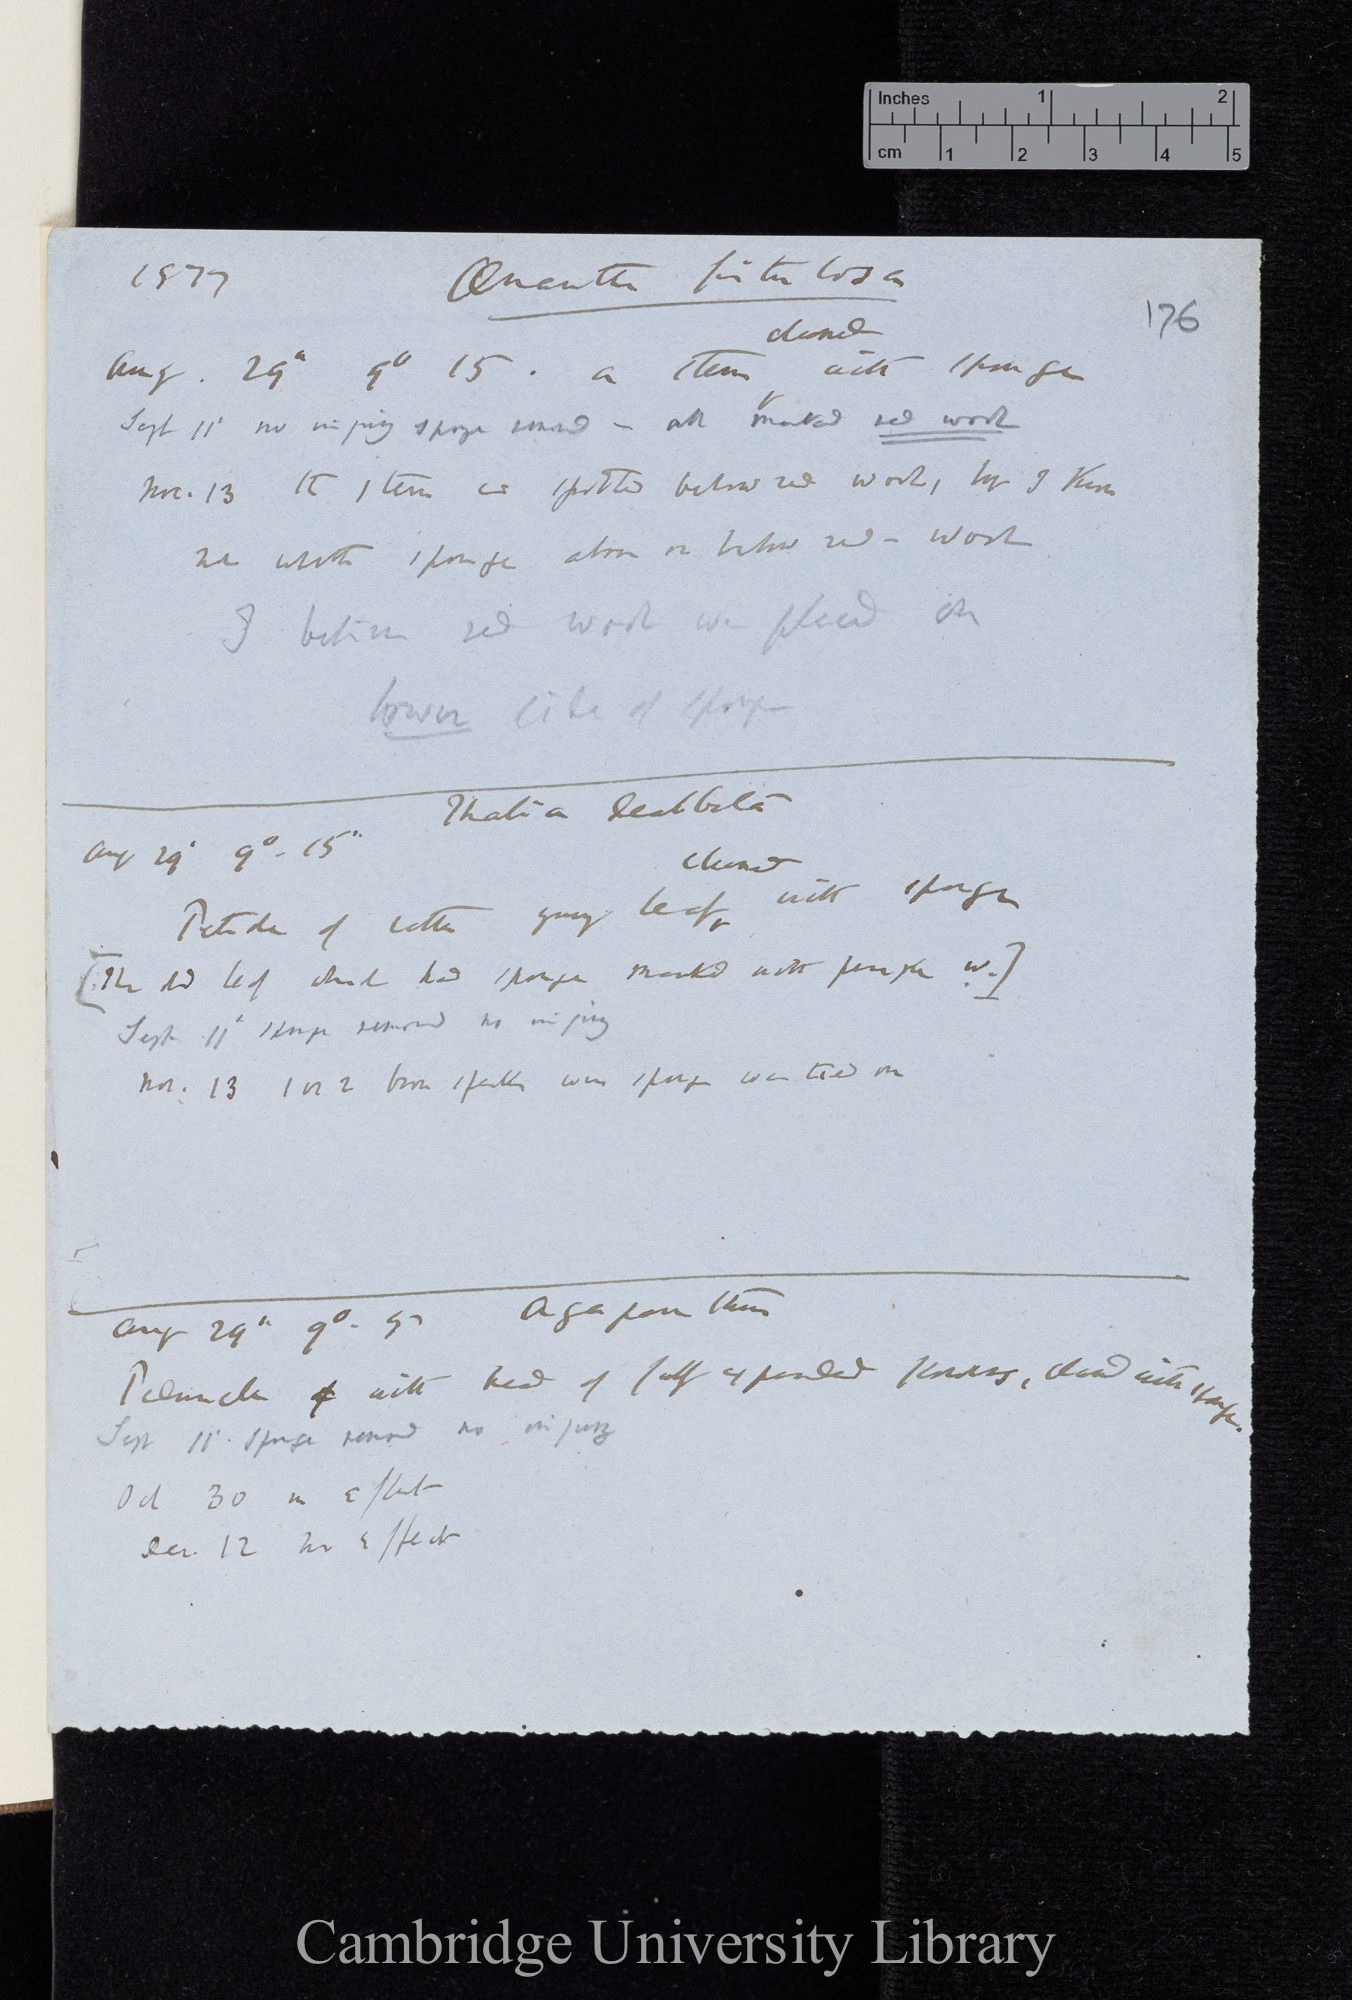 Inches 1 2
cm 1 2 3 4 5
1877 Œnanthe fistulosa
176
cleaned
Aug. 29th 9° 15'. a stem with sponge
Sept 11th no injury sponge removed — all marked red wool
Nov. 13 the stem is spotted below red wool, by I know
not whether sponge above or below red-wool
I believe red wool was placed on
lower side of sponge
Thalia dealbata
Aug 29th 9°-15'
cleaned
Petiole of rather young leaf with sponge
[The old leaf which had sponge marked with purple w.]
Sept 11th sponge removed no injury
Nov. 13 1 or 2 brown specks where sponge was tied on
Aug 29th 9°- Agapanthus
Peduncle with head of fully expanded flowers, cleaned with sponge.
Sept 11th sponge removed no injury
Oct 30 no effect
Dec. 12 no effect
Cambridge University Library